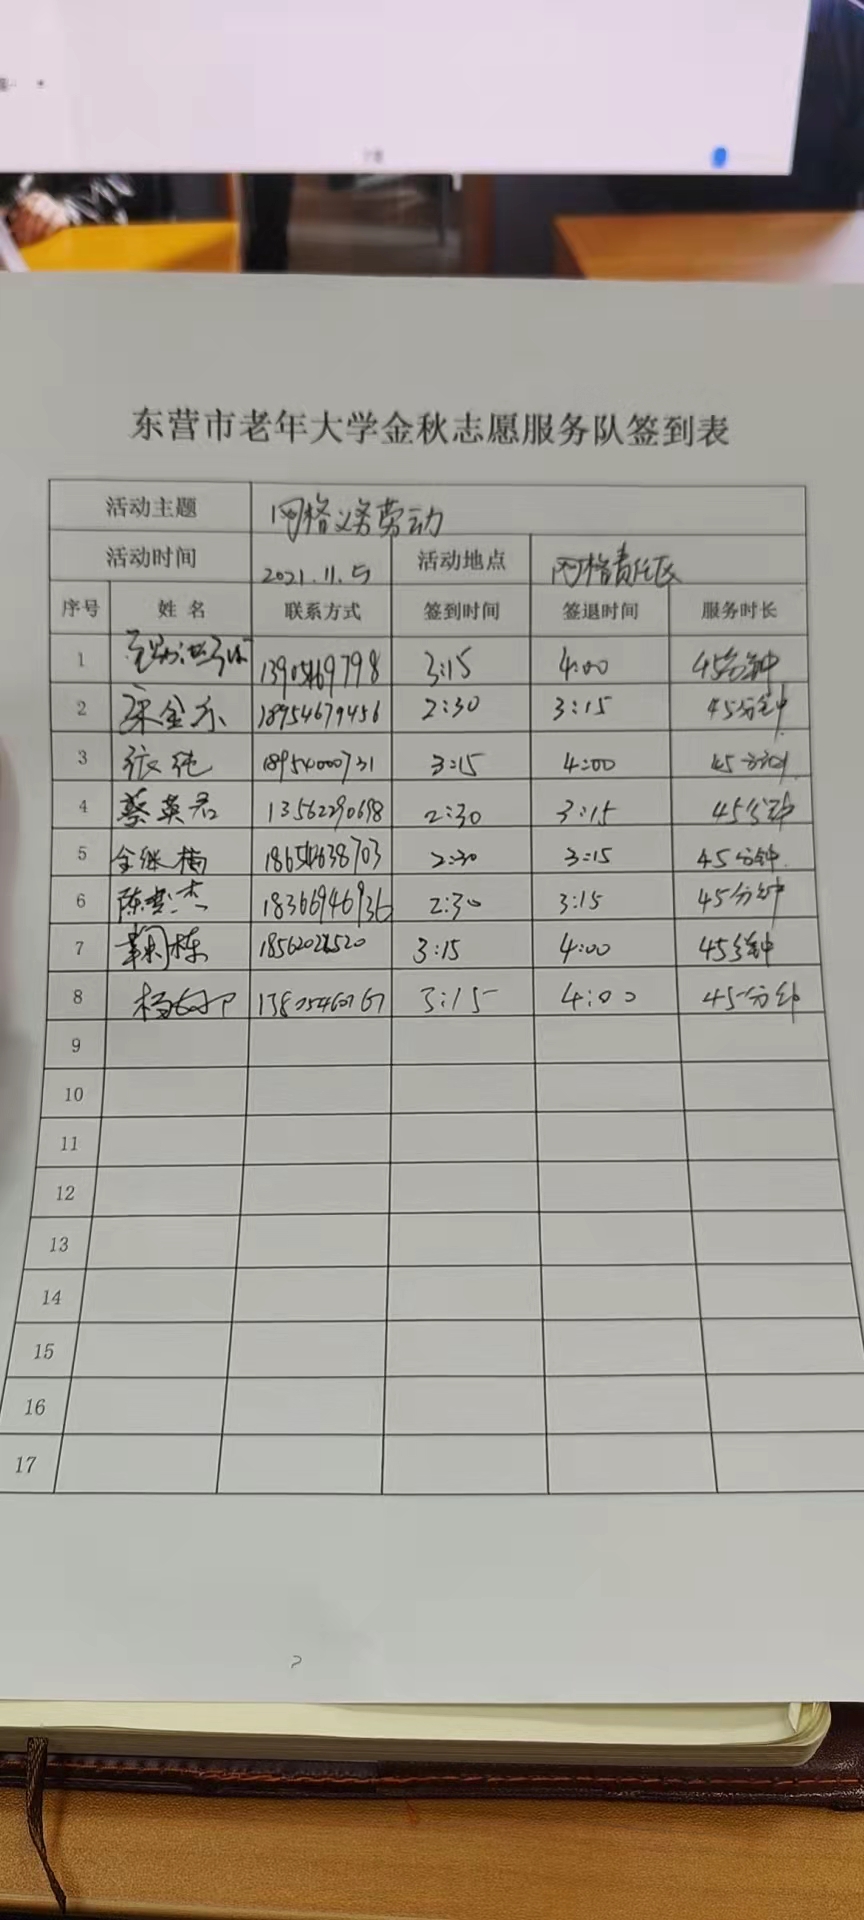 东营市老年大学金秋志愿服务队签到表
活动主题 网格义务劳动
活动时间 2021.11.5 活动地点 网格责任区
序号 姓名 联系方式 签到时间 签退时间 服务时长
1 13905469798 3:15 4:00 45分钟
2 宋金乐 18954679456 2:30 3:15 45分钟
3 张纯 18954000731 3:15 4:00 45分钟
4 蔡英君 13562290698 2:30 3:15 45分钟
5 2:30 3:15 45分钟
6 18366946936 2:30 3:15 45分钟
7 3:15 4:00 45分钟
8 3:15 4:00 45分钟
9
10
11
12
13
14
15
16
17